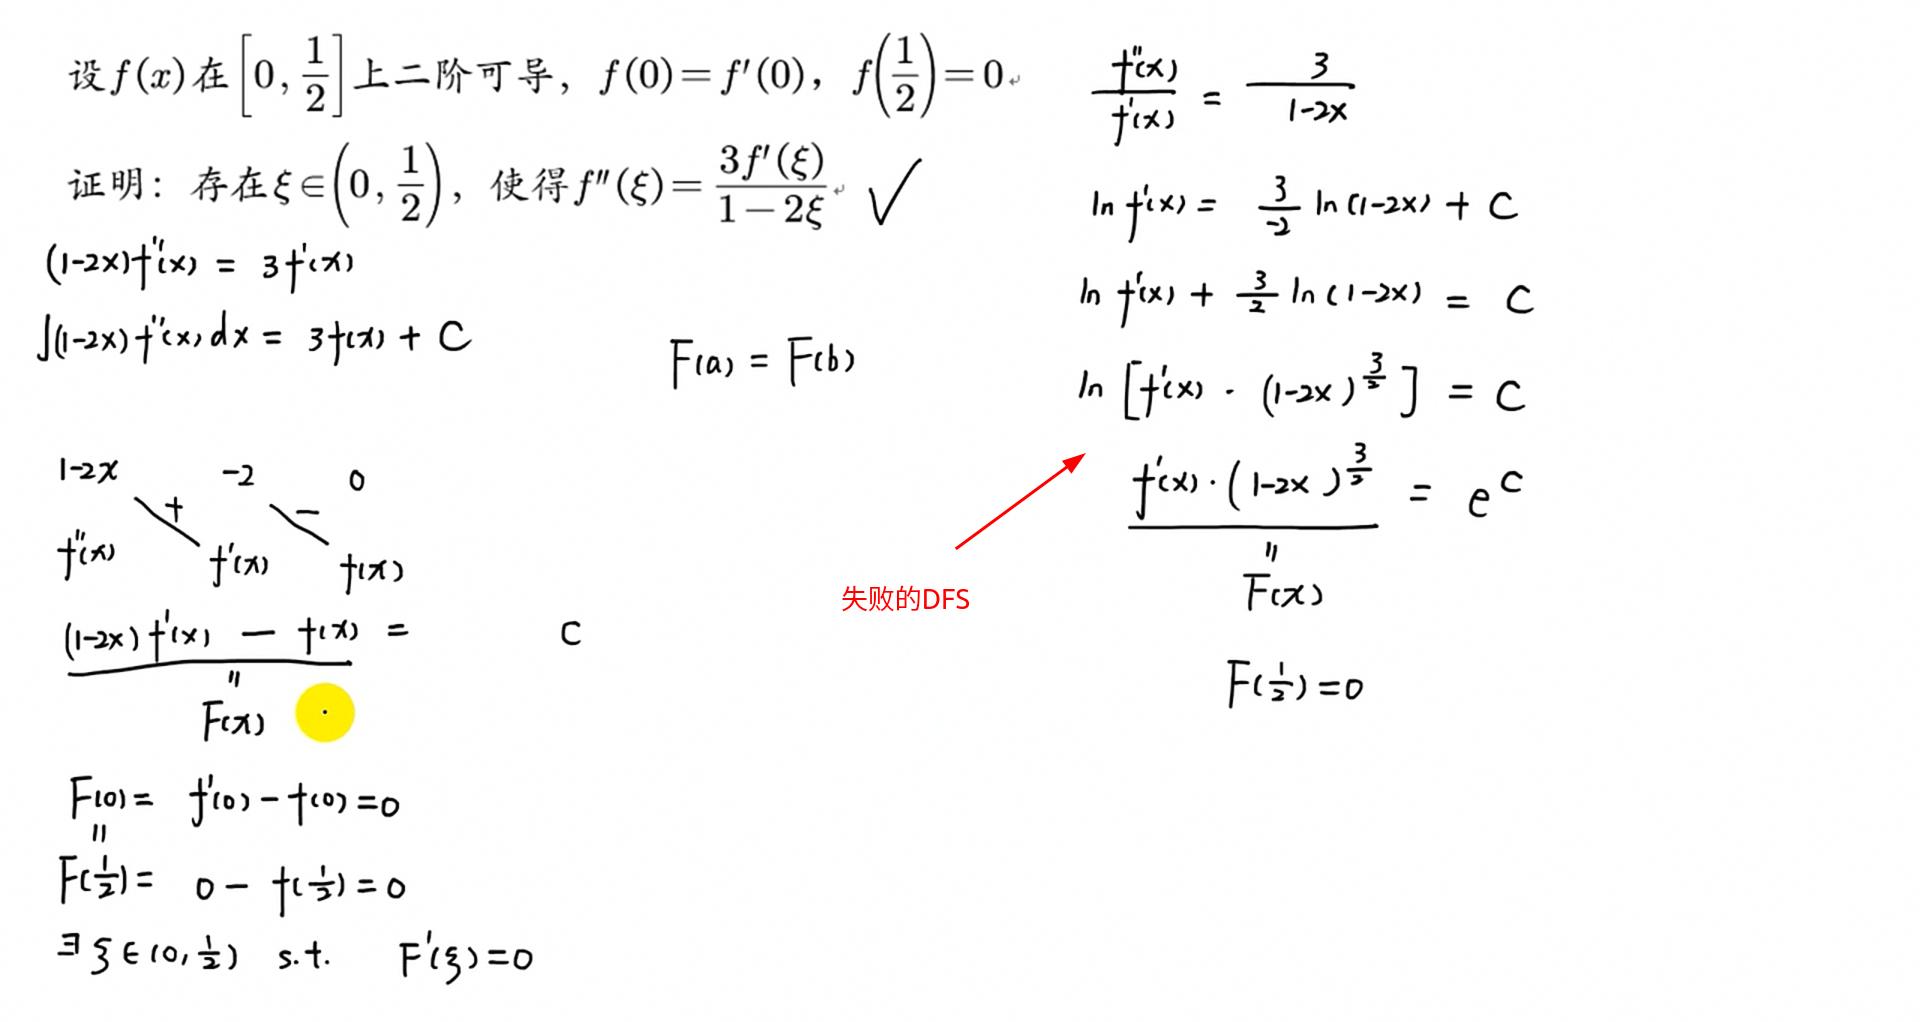 设f(x)在[0, 1/2]上二阶可导，f(0)=f′(0)，f(1/2)=0
证明：存在ξ∈(0, 1/2)，使得f″(ξ)=3f′(ξ)/(1−2ξ) ✓
(1-2x)f″(x) = 3f′(x)
∫(1-2x)f″(x)dx = 3f(x) + C
F(a) = F(b)
1-2x -2 0
+ −
f″(x) f′(x) f(x)
(1-2x)f′(x) − f(x) = C
=
F(x)
F(0) = f′(0) − f(0) = 0
=
F(1/2) = 0 − f(1/2) = 0
∃ ξ ∈ (0, 1/2) s.t. F′(ξ) = 0
f″(x)/f′(x) = 3/(1-2x)
ln f′(x) = 3/-2 ln(1-2x) + C
ln f′(x) + 3/2 ln(1-2x) = C
ln [f′(x) · (1-2x)^(3/2)] = C
f′(x) · (1-2x)^(3/2) = e^C
=
F(x)
F(1/2) = 0
失败的DFS